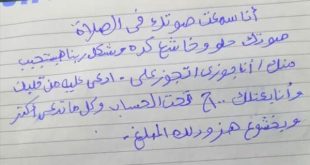 أنا سمعت صوتك فى الصلاة
صوتك حلو وخاشع كده وشكل ربنا هيستجيب
منك / أنا جوزى اتجوز على . ادعى عليه من قلبك
وأنا بعتلك ج تحت الحساب وكل ما تدعى أكتر
وبخشوع هزودلك المبلغ .